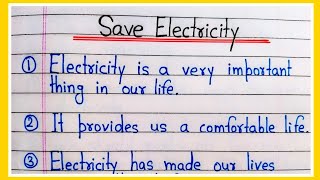 Save Electricity
① Electricity is a very important
thing in our life.
② It provides us a comfortable life.
③ Electricity has made our lives